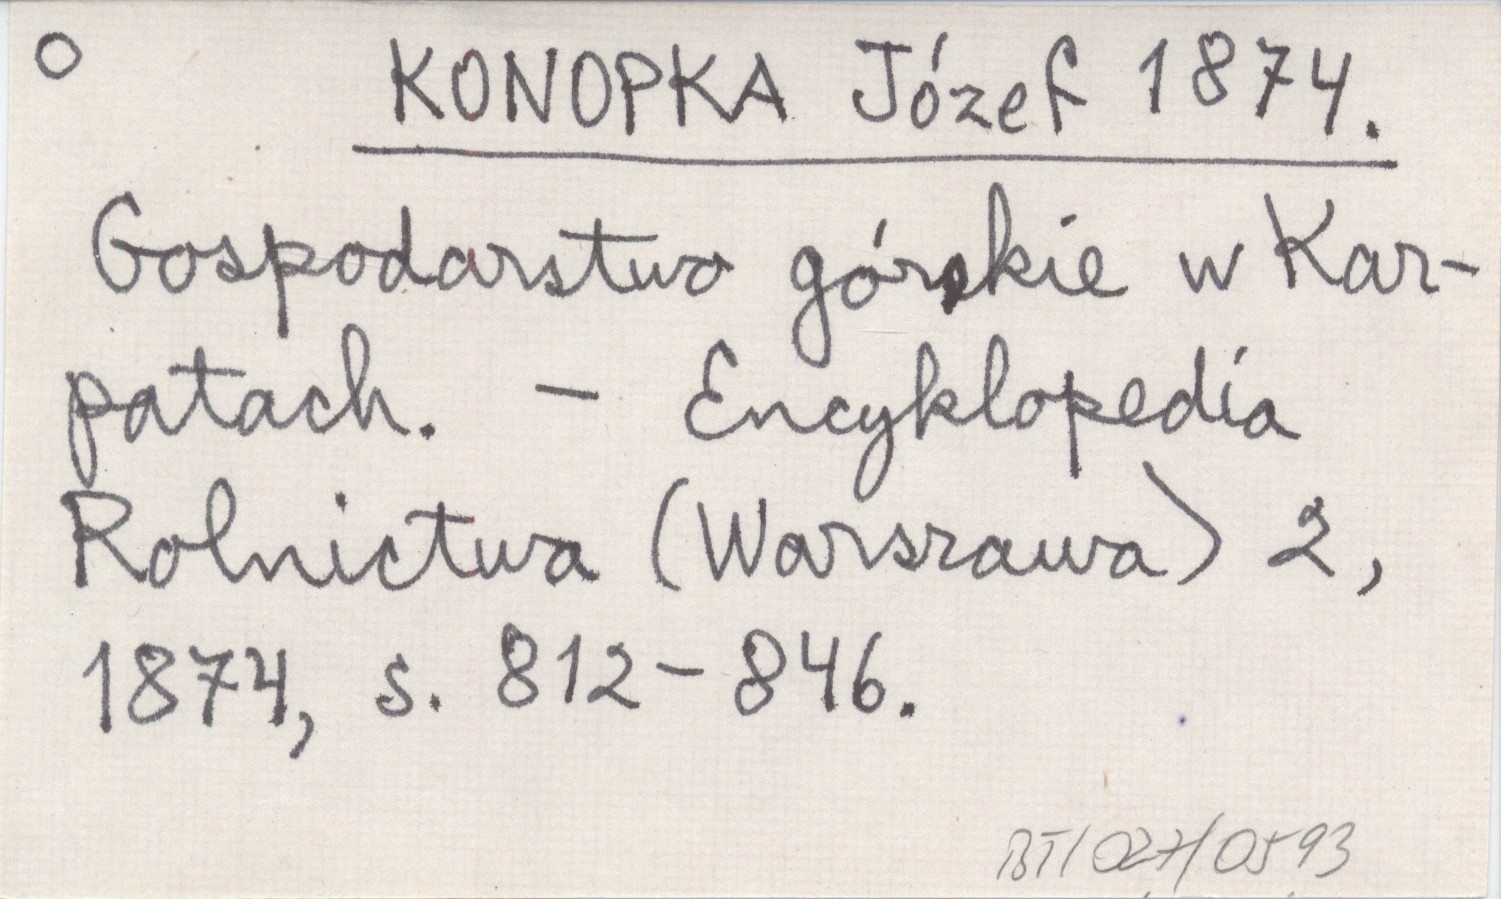 O KONOPKA Józef 1874.
Gospodarstwo górskie w Kar-
patach. — Encyklopedia
Rolnictwa (Warszawa) 2,
1874, s. 812-846.
BT/027/0593